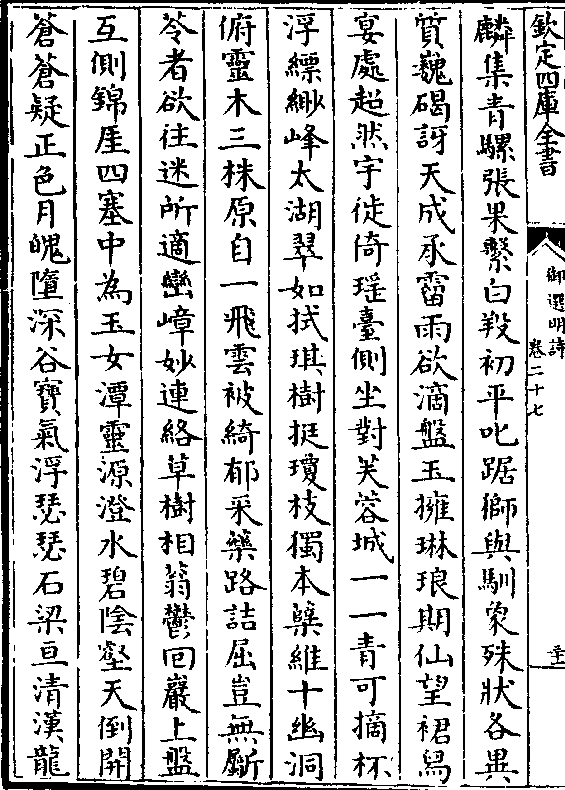 欽定四庫全書
御選明詩
卷二十七
麟集青騾張果繫白羖初平叱踞獅與馴象殊狀各異
質巍碣訝天成承霤雨欲滴盤玉擁琳琅期仙望裙舄
宴處超然宇徙倚瑤臺側坐對芙蓉城一一青可摘杯
浮縹緲峰太湖翠如拭琪樹挺瓊枝獨本櫱維十幽洞
俯靈木三株原自一飛雲被綺郁采藥路詰屈豈無斸
苓者欲往迷所適巒嶂妙連絡草樹相蓊鬱回巖上盤
互側錦厓四塞中為玉女潭靈源澄水碧陰壑天倒開
蒼蒼疑正色月魄墮深谷寶氣浮瑟瑟石梁亘清漢龍